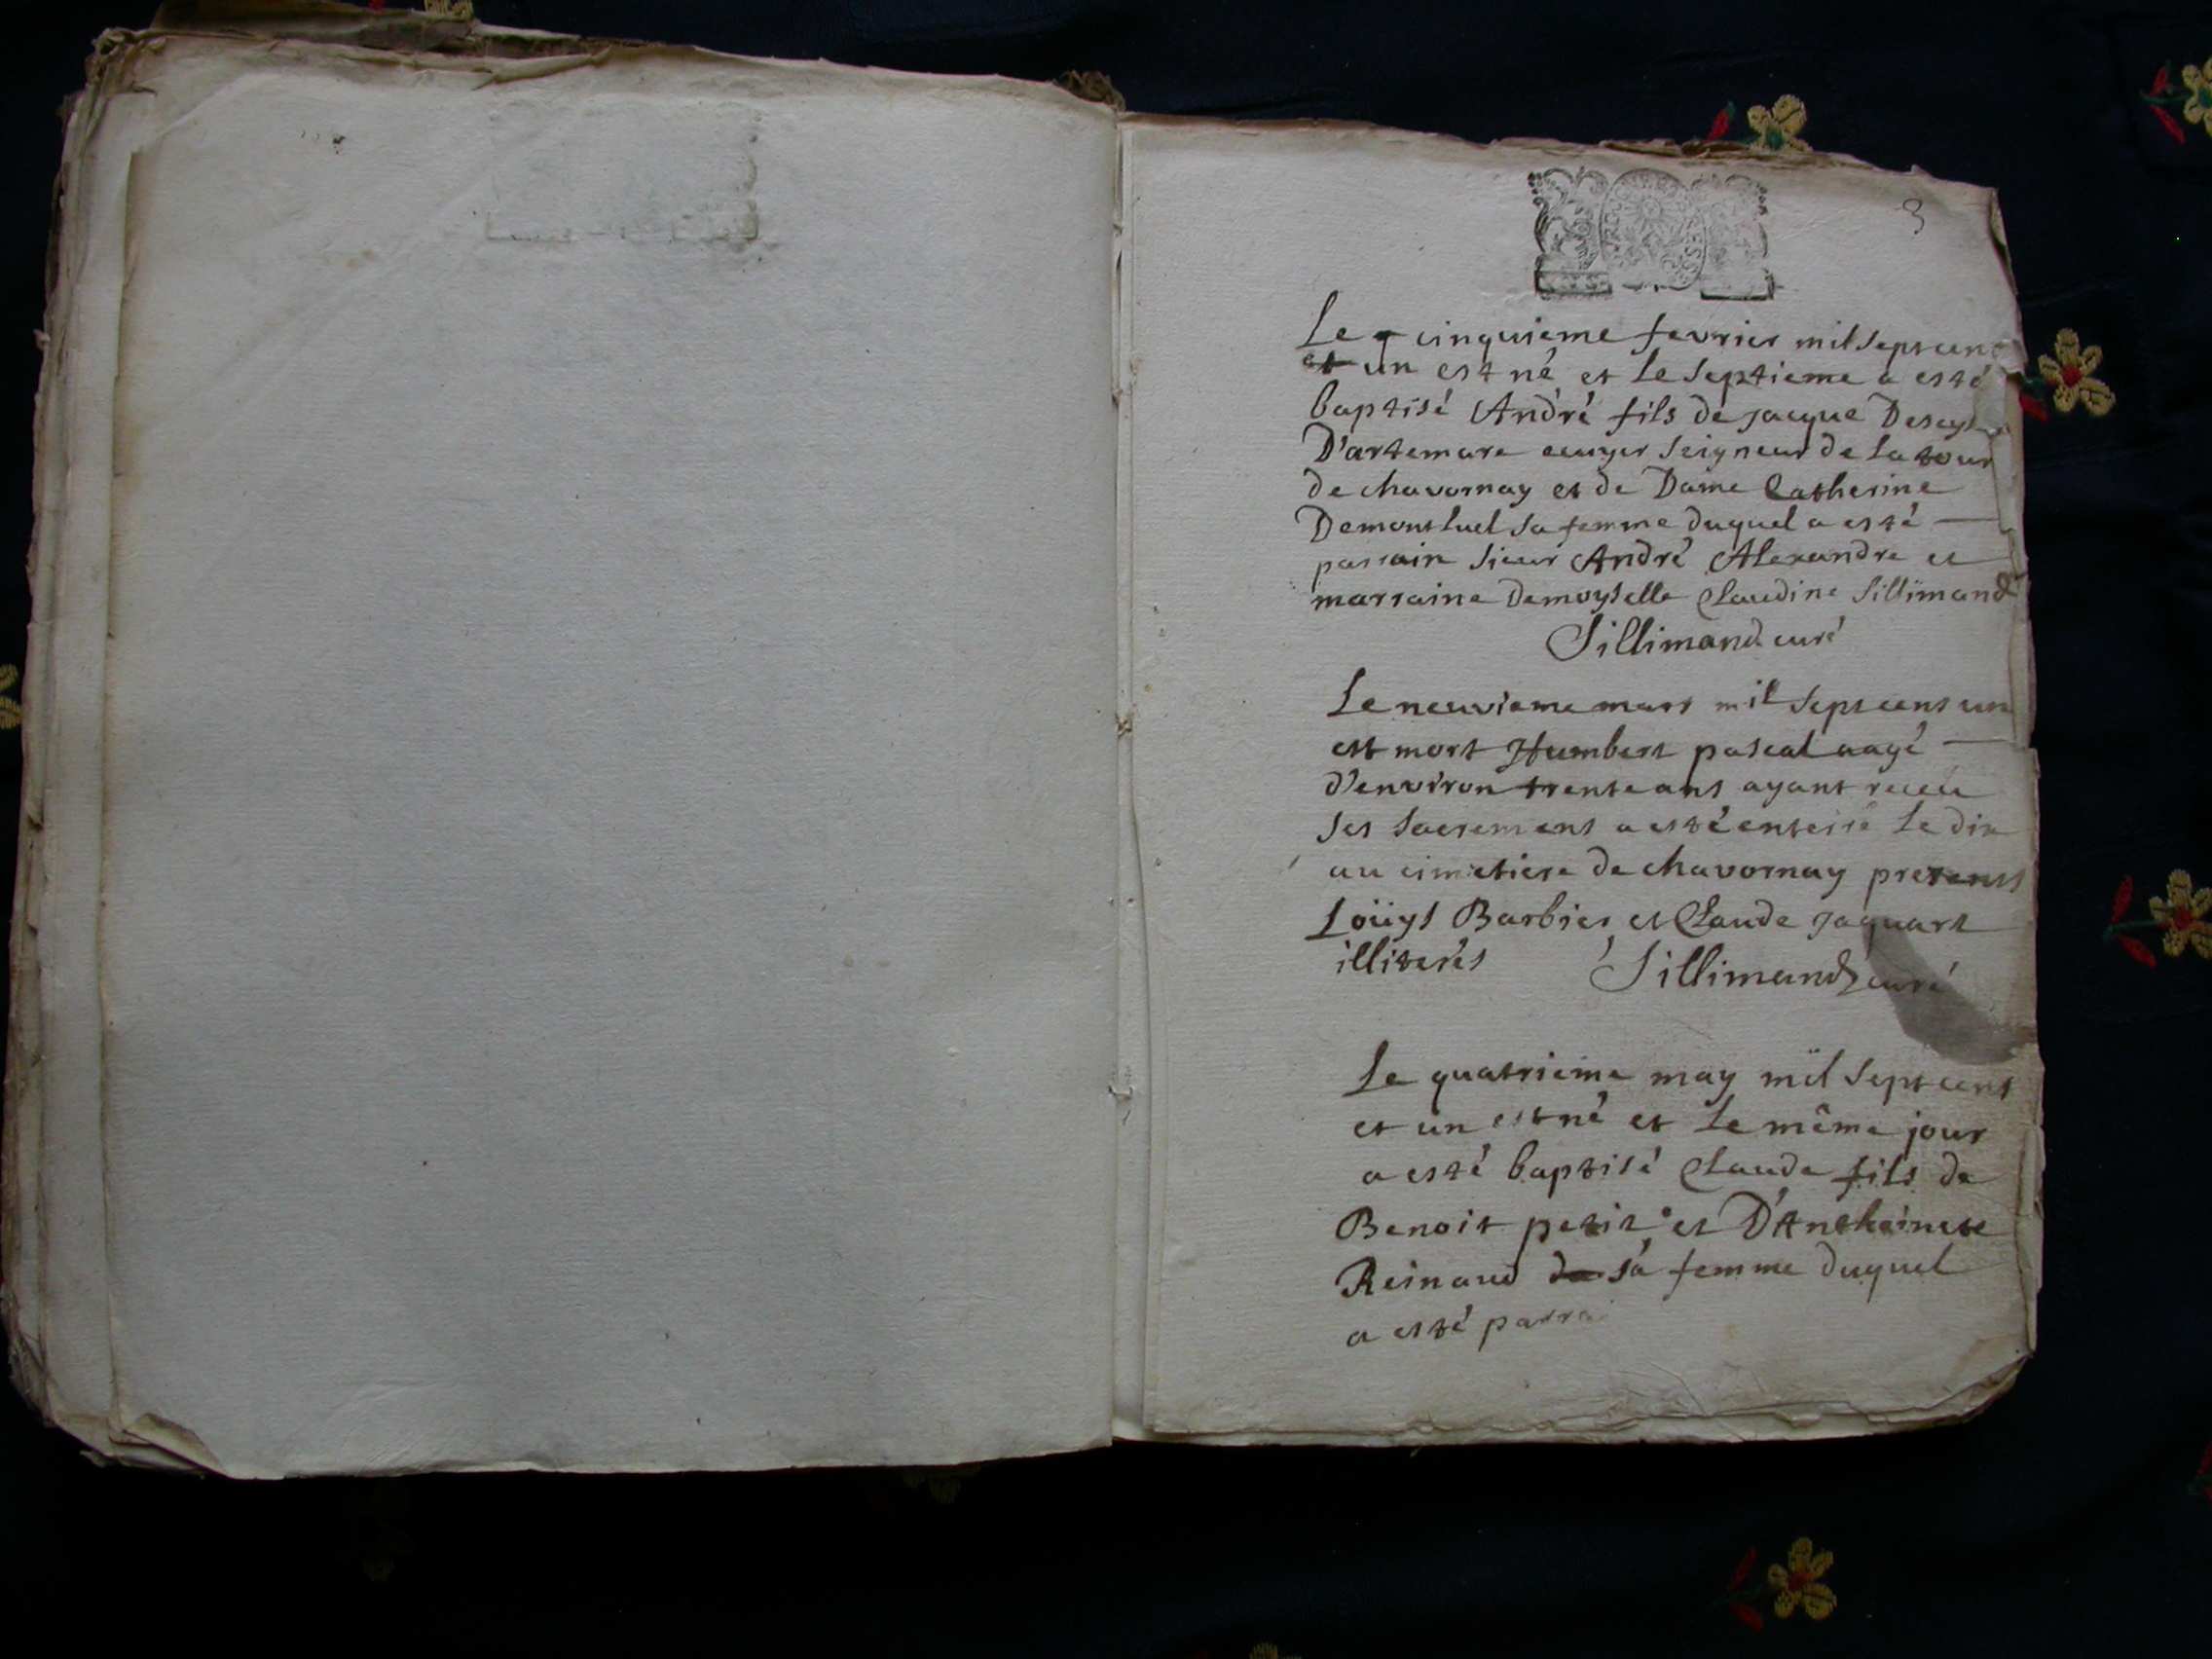 3
Le cinquieme fevrier mil sept cent
et un est né et le septieme a esté
baptisé André fils de jacque
D'artemare ecuyer seigneur de la tour
de chavornay et de Dame Catherine
Demontluel sa femme duquel a esté
parrain sieur André Alexandre et
marraine demoyselle Claudine Sillimand
Sillimand curé
Le neuvieme mars mil sept cent un
est mort Humbert pascal aagé
d'environ trente ans ayant receu
ses sacrements a esté enterré le dix
au cimetiere de chavornay presents
Loüys Barbier et Claude jaquart
illiterés Sillimand curé
Le quatrieme may mil sept cent
et un est né et le même jour
a esté baptisé Claude fils de
Benoit petit et D'Anthoinete
Reinaud sa femme duquel
a esté parrai